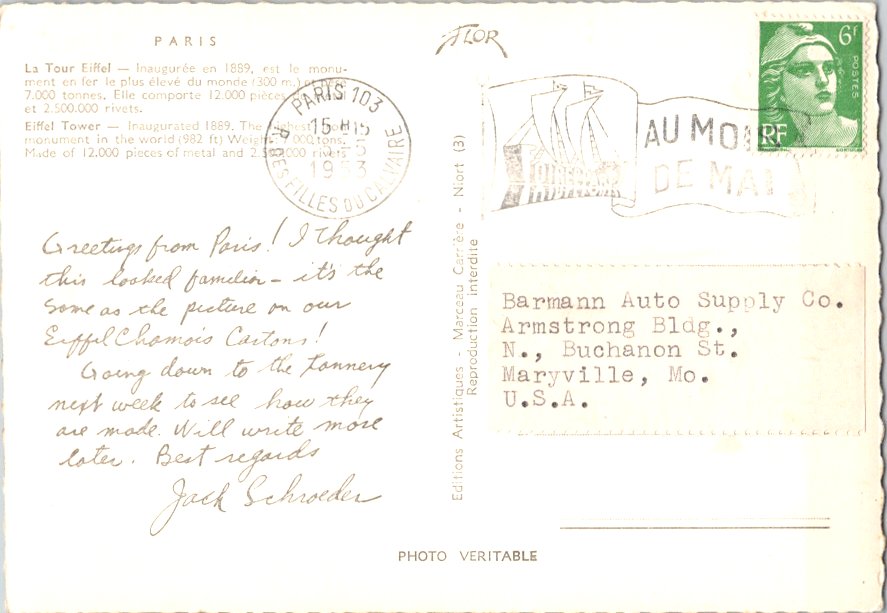 PARIS
La Tour Eiffel — Inaugurée en 1889, est le monu-
ment en fer le plus élevé du monde (300 m.) et pèse
7.000 tonnes. Elle comporte 12.000 pièces
et 2.500.000 rivets.
Eiffel Tower — Inaugurated 1889. The
monument in the world (982 ft) Weighs tons.
Made of 12,000 pieces of metal and rivets.
FLOR
PARIS 103
15 H15
1953
R. DES FILLES DU CALVAIRE
AU MOIS
DE MAI
6F
POSTES
RF
Greetings from Paris! I thought
this looked familiar - it's the
same as the picture on our
Eiffel Chamois Cartons!
Going down to the tannery
next week to see how they
are made. Will write more
later. Best regards
Jack Schroeder
Editions Artistiques - Marceau Carrière - Niort (3)
Reproduction interdite
Barmann Auto Supply Co.
Armstrong Bldg.,
N., Buchanon St.
Maryville, Mo.
U.S.A.
PHOTO VERITABLE